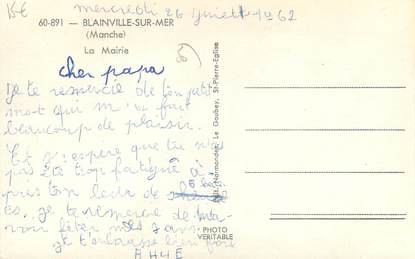 15€
mercredi 26 juillet 1962
60-891 — BLAINVILLE-SUR-MER
(Manche)
La Mairie
cher papa
je te remercie de ton petit
mot qui m'a fait
beaucoup de plaisir.
Et j'espère que tu n'as
pas été trop fatigué à
près ton de 5 heures
je te remercie de
voir fêter mes 7 ans.
je t'embrasse bien fort
ANNE
PHOTO
VERITABLE
Edit. Normandes, Le Goubey, St-Pierre-Eglise